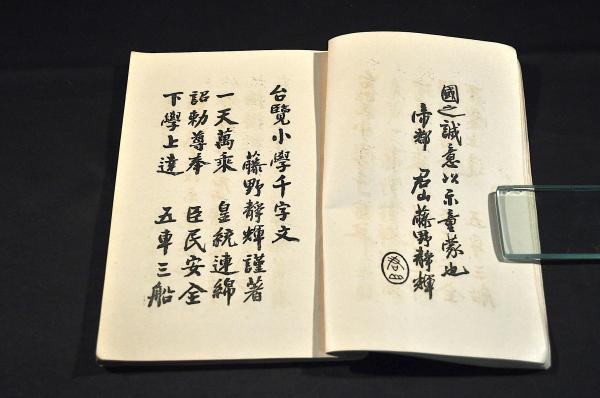 國之誠意以示童蒙也
帝都 君山藤野静輝
君山
台覽小學千字文
藤野静輝謹著
一天萬乘 皇統連綿
詔勅尊奉 臣民安全
下學上達 五車三船